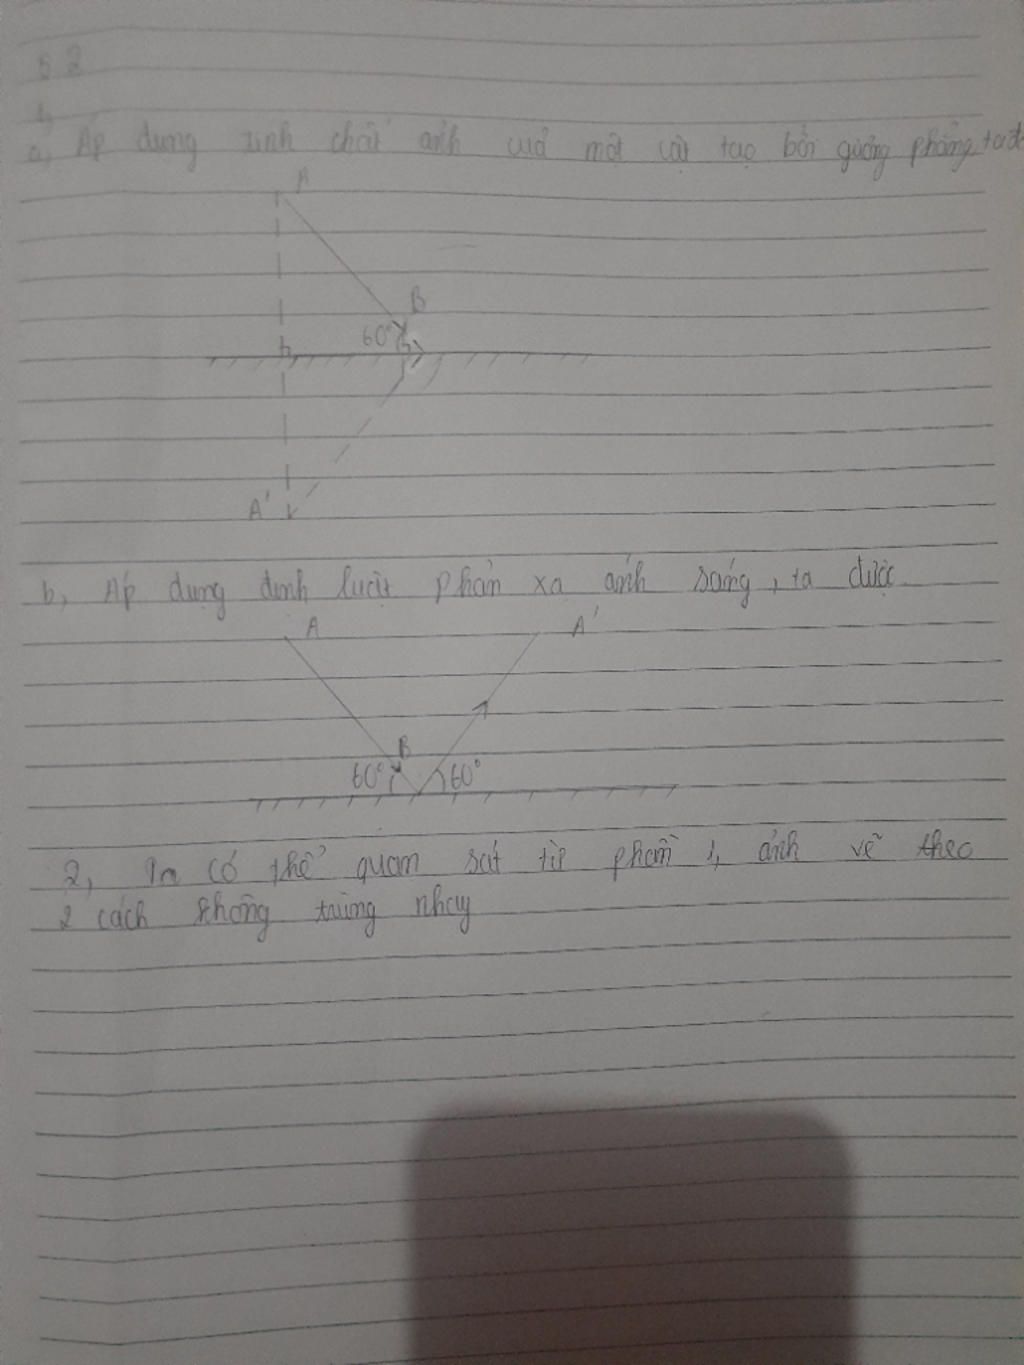 5 2
1,
a, Áp dụng tính chất ảnh của một vật tạo bởi gương phẳng, ta đ
A
B
60°
A'
b, Áp dụng định luật phản xạ ánh sáng, ta được
A A'
B
60° 60°
2, Ta có thể quan sát từ phần 1, ảnh vẽ theo
2 cách không trùng nhau